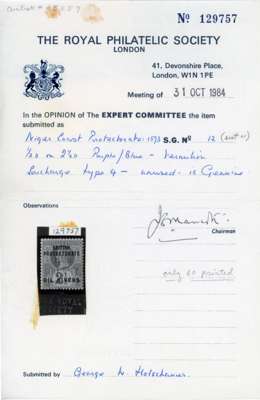 Nº 129757
THE ROYAL PHILATELIC SOCIETY
LONDON
41, Devonshire Place,
London, W1N 1PE
Meeting of 31 OCT 1984
In the OPINION of The EXPERT COMMITTEE the item
submitted as
Niger Coast Protectorate 1893 S.G. Nº 12
½d on 2½d Purple/Blue - Vermilion
Surcharge type 4 - unused - is Genuine
Observations
Chairman
only 60 printed
129757
BRITISH
PROTECTORATE
OIL RIVERS
THE ROYAL
SOCIETY
Submitted by George